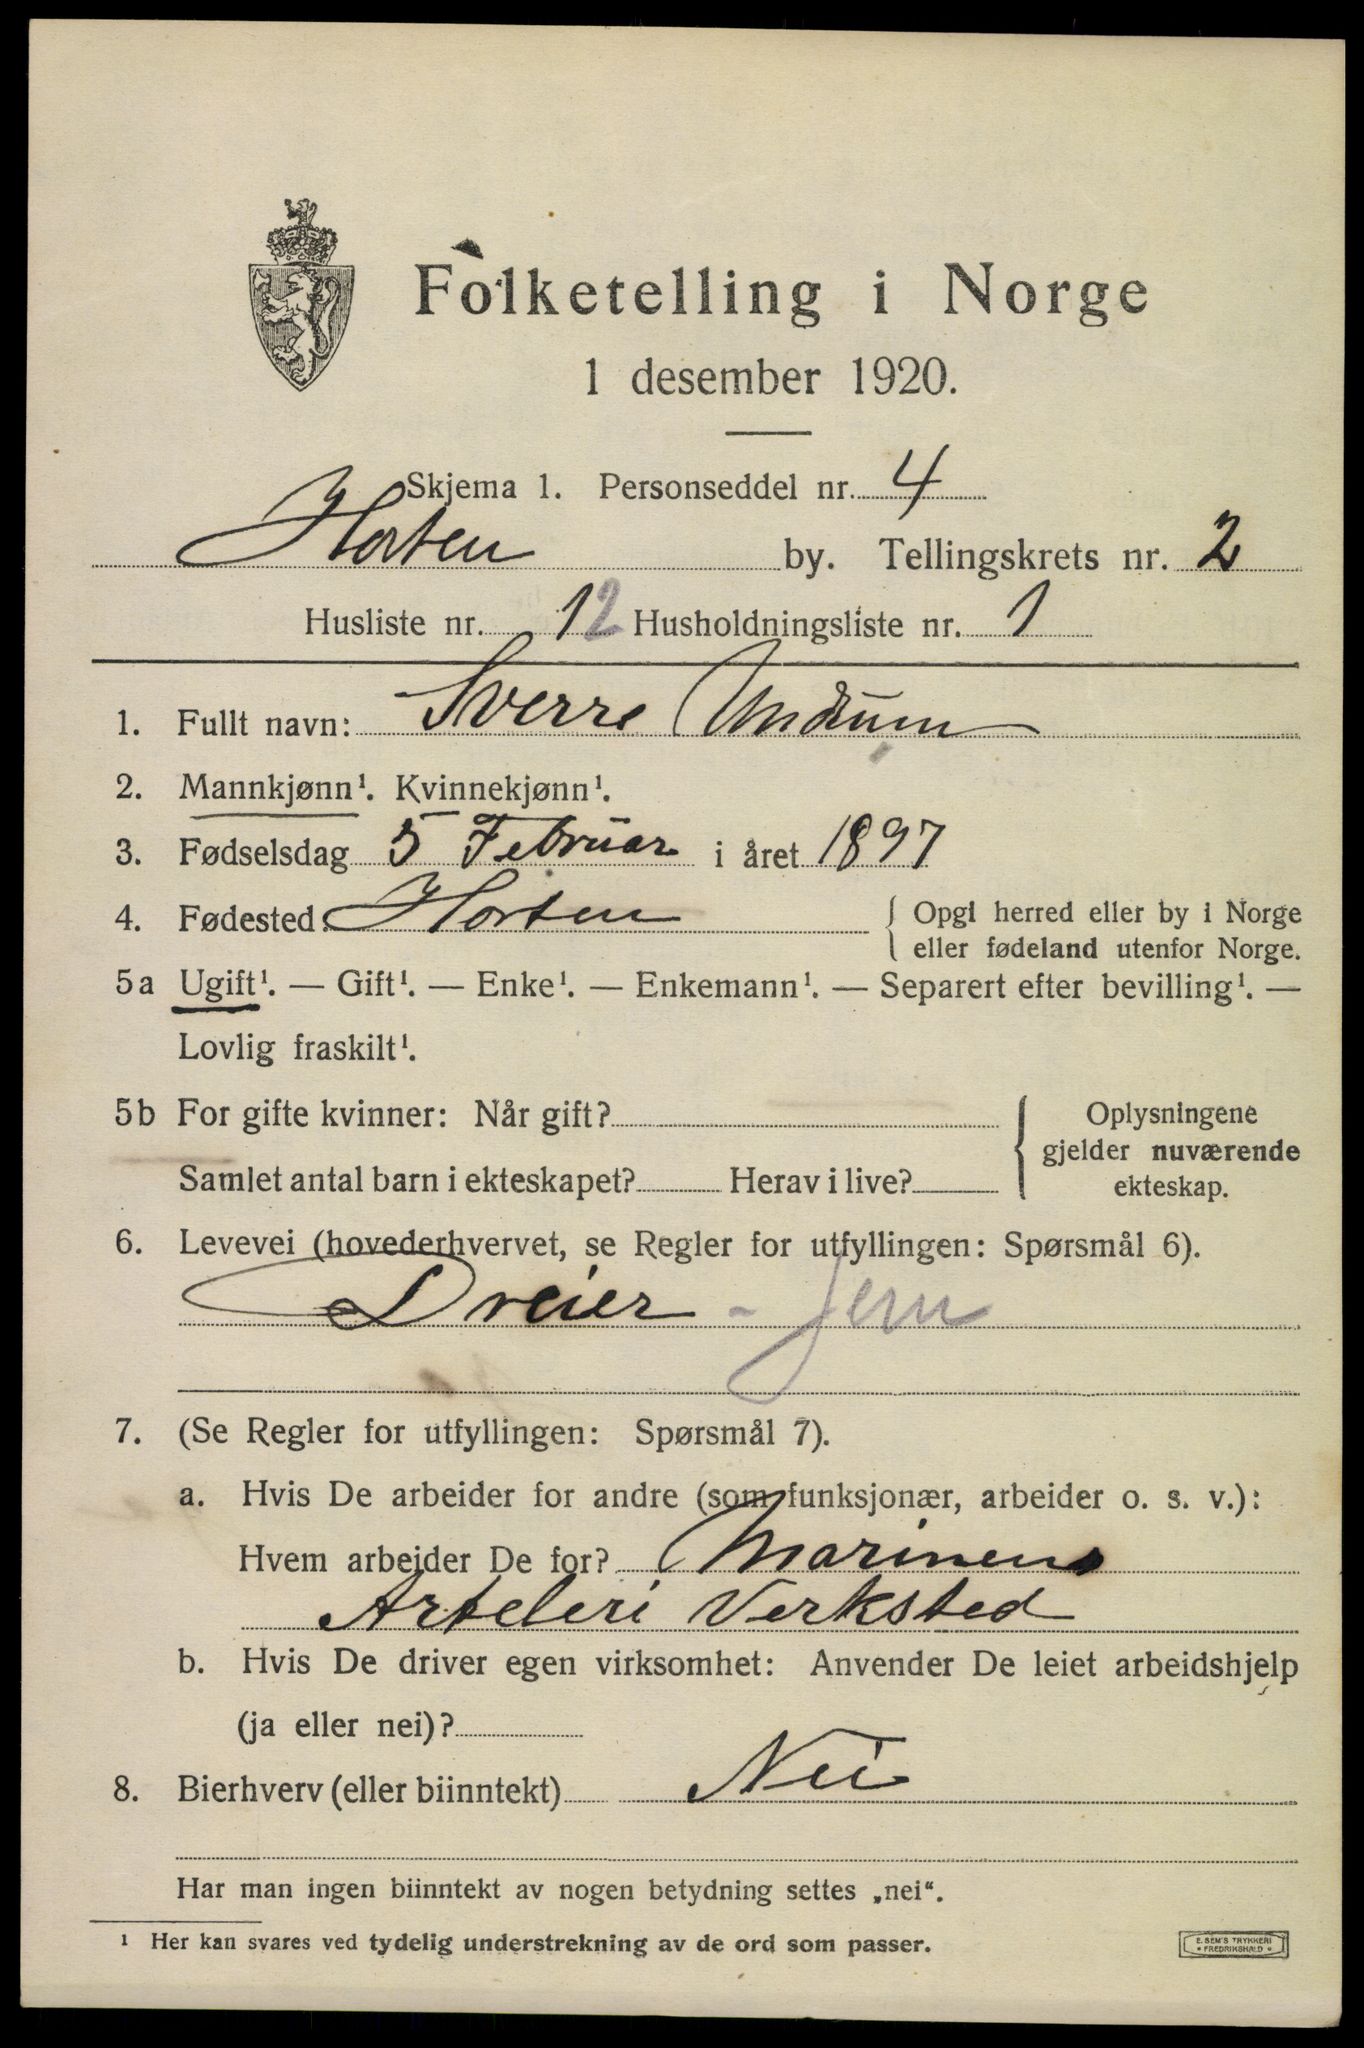 Folketelling i Norge
1 desember 1920.
Skjema 1. Personseddel nr. 4
Horten by. Tellingskrets nr. 2
Husliste nr. 12 Husholdningsliste nr. 1
1. Fullt navn: Sverre Undrum
2. Mannkjønn¹. Kvinnekjønn¹.
3. Fødselsdag 5 Februar i året 1897
4. Fødested: Horten { Opgi herred eller by i Norge
eller fødeland utenfor Norge.
5a Ugift¹. — Gift¹. — Enke¹. — Enkemann¹. — Separert efter bevilling¹. —
Lovlig fraskilt¹.
5b For gifte kvinner: Når gift? { Oplysningene
gjelder nuværende
Samlet antal barn i ekteskapet? Herav i live? ekteskap.
6. Levevei (hovederhvervet, se Regler for utfyllingen: Spørsmål 6).
Dreier - Jern
7. (Se Regler for utfyllingen: Spørsmål 7).
a. Hvis De arbeider for andre (som funksjonær, arbeider o. s. v.):
Hvem arbeider De for? Marinens
Arteleri Verksted
b. Hvis De driver egen virksomhet: Anvender De leiet arbeidshjelp
(ja eller nei)?
8. Bierhverv (eller biinntekt) Nei
Har man ingen biinntekt av nogen betydning settes „nei“.
¹ Her kan svares ved tydelig understrekning av de ord som passer.
E. SEM'S TRYKKERI
* FREDRIKSHALD *